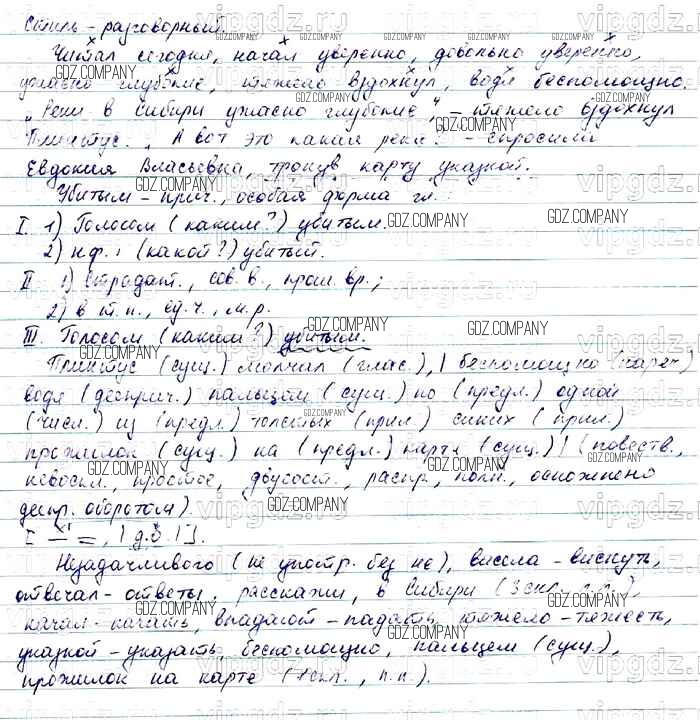 Стиль - разговорный.
Читал сегодня, начал уверенно, довольно уверенно,
ужасно глубокие, тяжело вздохнул, водя беспомощно.
„Реки в Сибири ужасно глубокие", - тяжело вздохнул
Плинтус. „А вот это какая река? - спросила
Евдокия Власьевна, тронув карту указкой.
Убитым - прич., особая форма гл.
I. 1) Голосом (каким?) убитым.
2) н.ф.: (какой?) убитый.
II 1) Страдат., сов. в., прош. вр.;
2) в т.п., ед.ч., м.р.
III. Голосом (каким?) убитым.
Плинтус (сущ.) молчал (глаг.), | беспомощно (нареч)
водя (дееприч.) пальцем (сущ.) по (предл.) одной
(числ.) из (предл.) толстых (прил.) синих (прил.)
прожилок (сущ.) на (предл.) карте (сущ.) | (повеств.,
невоскл., простое, двусост., распр., полн., осложнено
деепр. оборотом).
[ - =, | д.о. | ].
Незадачливого (не употр. без не), висела - виснуть,
отвечал - ответы, расскажи, в Сибири (3 скл., п.п.),
начал - начать, впадают - падать, тяжело - тяжесть,
указкой - указать, беспомощно, пальцем (сущ.),
прожилок на карте (1 скл., п.п.).
GDZ.COMPANY
vipgdz.ru